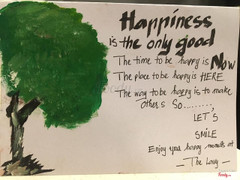 Happiness
is the only good
The time to be happy is Now
The place to be happy is HERE
The way to be happy is to make
others So........,
LET'S
SMILE
Enjoy you happy
— The Lovy —